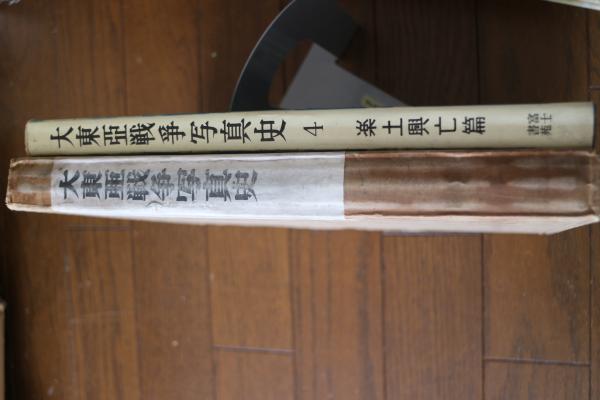 大東亞戦爭写真史 4 楽土興亡篇
富士書苑
大東亜戦争写真史